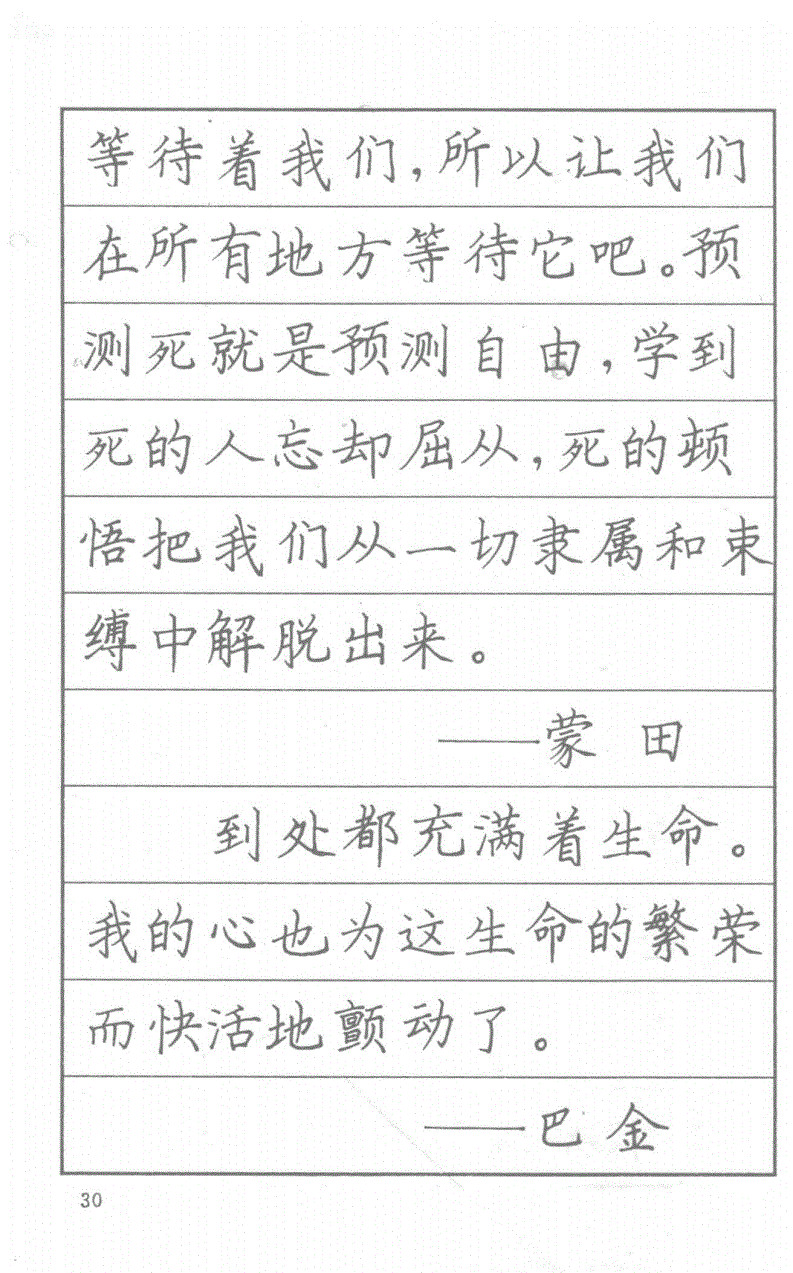 等待着我们,所以让我们
在所有地方等待它吧。预
测死就是预测自由,学到
死的人忘却屈从,死的顿
悟把我们从一切隶属和束
缚中解脱出来。
——蒙田
到处都充满着生命。
我的心也为这生命的繁荣
而快活地颤动了。
——巴金
30